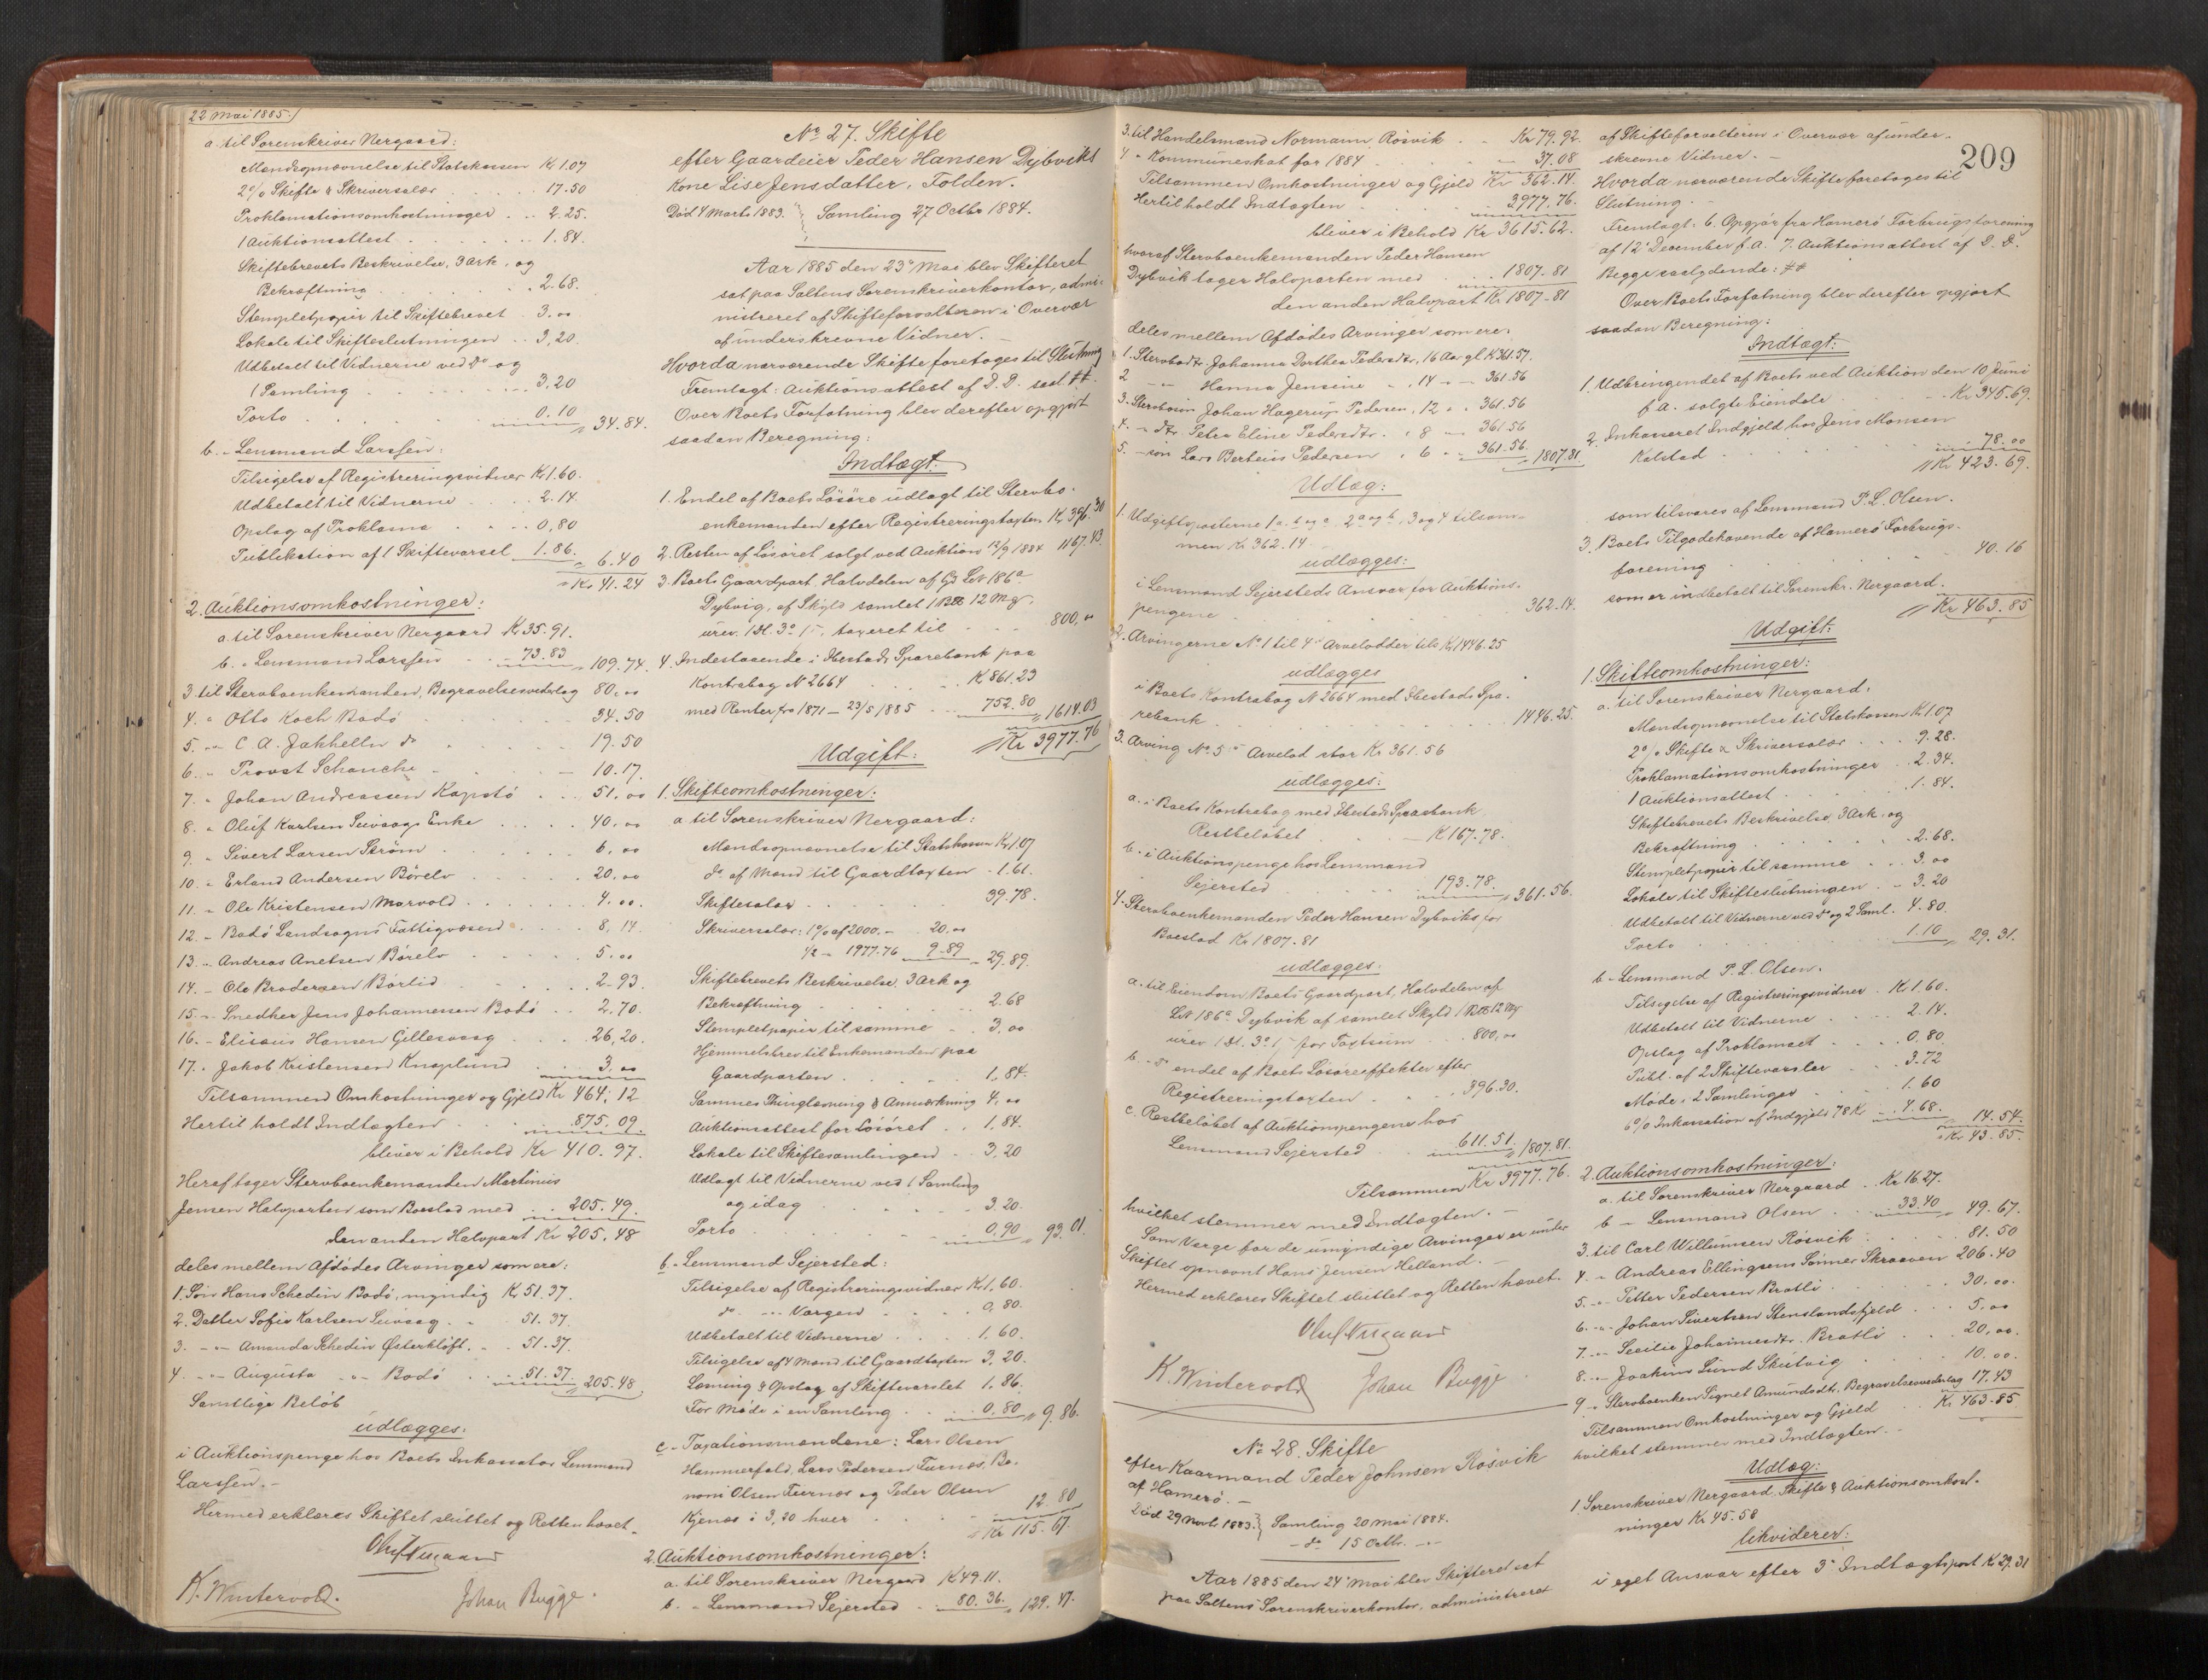 22 Mai 1885.
a. til Sorenskriver Nergaard:
Mandsopnævnelse til Statskassen Kr 1.07
2% Skifte & Skriversalær 17.50
Proklamationsomkostninger 2.25.
1 Auktionsattest 1.84.
Skiftebrevets Beskrivelse, 3 Ark, og
Bekræftning 2.68.
Stempletpapir til Skiftebrevet 3.00
Lokale til Skifteslutningen 3,20.
Udbetalt til Vidnerne ved Do og
1 Samling 3,20
Porto 0.10 " 34.84.
b. - Lensmand Larssen:
Tilsigelse af Registreringsvidner Kr 1.60.
Udbetalt til Vidnerne 2.14.
Opslag af Proklama 0,80
Publikation af 1 Skiftevarsel 1.86. " 6.40
" Kr 41.24
2. Auktionsomkostninger:
a. til Sorenskriver Nergaard Kr 35.91.
b. - Lensmand Larssen 73.83 " 109.74.
3 til Stervboenkemanden, Begravelsesvederlag 80.00
4. " Otto Koch Bodö 34.50
5. " C. A. Jakhelln do 19.50
6. " Provst Schanche 10.17.
7. " Johan Andreassen Kapstö 51.00
8. " Oluf Karlsen Seivaags Enke 40.00
9. " Sivert Larsen Ström 6.00
10. " Erland Andersen Börelv 20.00
11. " Ole Kristensen Marvold 4.00.
12. - Bodö Landsogns Fattigvæsen 8,14.
13. " Andreas Anetsen Börelv 5.00
14. - Ole Brodersen Börlid 2-93
15. - Snedker Jens Johannesen Bodö 2.70.
16. - Elisæus Hansen Gillesvaag 26,20.
17. " Jakob Kristensen Knaplund 3.00
Tilsammen Omkostninger og Gjeld Kr 464,12
Hertil holdt Indtægten 875.09.
bliver i Behold Kr 410.97.
Heraf tager Stervboenkemanden Martinus
Jensen Halvparten som Boeslod med 205.49.
den anden Halvpart Kr 205.48
deles mellem Afdödes Arvinger som ere:
1. Sön Hans Schedin Bodö, myndig Kr 51.37.
2. Datter Sofie Karlsen Seivaag 51.37.
3. - Amanda Schedin Østerklöft 51.37.
4. - Augusta - Bodö 51.37 " 205.48.
Samtlige Belöb
udlægges:
i Auktionspenge hos Boets Inkassator Lensmand
Larssen.-
Hermed erklæres Skiftet sluttet og Retten hævet.
Oluf Nergaard
K. Wintervold. Johan Bugge.
No 27. Skifte
efter Gaardeier Peder Hansen Dybviks
Kone Lise Jensdatter, Folden.
Död 4 Marts 1883. Samling 27 Octbr 1884.
Aar 1885 den 23de Mai blev Skifteret
sat paa Saltens Sorenskriverkontor, admi-
nistreret af Skifteforvalteren i Overvær
af underskrevne Vidner.
Hvorda nærværende Skifte foretoges til Slutning
Fremlagt: Auktionsattest af D. D. saal. ##.
Over Boets Forfatning blev derefter opgjort
saadan Beregning:
Indtægt:
1. Endel af Boets Lösöre udlagt til Stervbo-
enkemanden efter Registreringstaxten Kr 396.30
2. Resten af Lösöret solgt ved Auktion 12/9 1884 1167.43.
3. Boets Gaardpart, Halvdelen af G3 Lb 186a
Dybvig, af Skyld samlet 1 B 12 Mg.
urev. 1 Dl. 3 o 1 -, taxeret til 800,00
4. Indestaaende i Ibestads Sparebank paa
Kontrabog No 2664 Kr 861.23
med Renter fra 1871 - 23/5 1885 752.80 " 1614.03
Kr 3977.76
Udgift:
1. Skifteomkostninger:
a til Sorenskriver Nergaard:
Mandsopnævnelse til Statskassen Kr 1.07
do af Mand til Gaardtaxten 1.61.
Skiftesalær 39.78.
Skriversalær: 1% af 2000.- 20.00
1/2 - 1977.76 9.89 " 29.89.
Skiftebrevets Beskrivelse, 3 Ark og
Bekræftning 2.68
Stempletpapir til samme 3.00
Hjemmelsbrev til Enkemanden paa
Gaardparten 1.84.
Sammes Thinglæsning & Anmærkning 4.00
Auktionsattest for Lösöret 1.84.
Lokale til Skiftesamlingen 3.20
Udlagt til Vidnerne ved 1 Samling
og idag 3.20.
Porto 0.90 " 93.01.
b. - Lensmand Sejersted:
Tilsigelse af Registreringsvidner Kr 1,60.
do - Værgen 0,80.
Udbetalt til Vidnerne 1.60.
Tilsigelse af 4 Mand til Gaardtaxten 3.20.
Læsning & Opslag af Skiftevarslet 1.86.
For Möde i en Samling 0.80 " 9.86.
c. - Taxationsmændene: Lars Olsen
Hammerfald, Lars Pedersen Furnes, Be-
noni Olsen Furnes og Peder Olsen
Kjenæs à 3,20 hver 12.80
" Kr 115.67.
2. Auktionsomkostninger:
a. til Sorenskriver Nergaard Kr 49.11.
b. - Lensmand Sejersted 80.36. " 129.47.
209
3. til Handelsmand Normann, Rösvik Kr 79.92.
4 - Kommuneskat for 1884 37.08
Tilsammen Omkostninger og Gjeld Kr 362.14.
Hertil holdt Indtægten 3977.76.
bliver i Behold Kr 3615.62.
hvoraf Stervboenkemanden Peder Hansen
Dybvik tager Halvparten med 1807-81
den anden Halvpart Kr 1807-81
deles mellem Afdödes Arvinger som ere:
1. Stervbodtr Johanna Dorthea Pedersdtr, 16 Aar gl. Kr 361.57.
2 - Hanna Jensine - 14 - 361.56
3. Stervbosön Johan Hagerup Pedersen, 12 - 361.56
4. - dtr. Petra Eline Pedersdtr. - 8 - 361.56
5. - sön Lars Berteus Pedersen - 6 - 361.56. " 1807.81
Udlæg:
1. Udgiftsposterne 1 a. b og c, 2 a og b, 3 og 4 tilsam-
men Kr 362.14
udlægges:
i Lensmand Sejersteds Ansvar for Auktions-
pengene 362.14.
2. Arvingerne No 1 til 4s Arvelodder tils. Kr 1446.25
udlægges
i Boets Kontrabog N 2664 med Ibestads Spa-
rebank 1446.25.
3. Arving No 5s Arvelod stor Kr 361.56
udlægges:
a. i Boets Kontrabog med Ibestads Sparebank
Restbelöbet Kr 167.78.
b. i Auktionspenge hos Lensmand
Sejersted 193.78. " 361.56.
4. Stervboenkemanden Peder Hansen Dybviks for
Boeslod Kr 1807.81
udlægges:
a. til Eiendom Boets Gaardpart, Halvdelen af
Lb 186a Dybvik af samlet Skyld 1 B 12 Mg
urev. 1 Dl. 3 o 1 - for Taxtsum 800,00
b. - do endel af Boets Lösöreeffekter efter
Registreringstaxten 396.30.
c. Restbelöbet af Auktionspengene hos
Lensmand Sejersted 611.51. " 1807.81.
Tilsammen Kr 3977.76.
hvilket stemmer med Indtægten.
Som Værge for de umyndige Arvinger er under
Skiftet opnævnt Hans Jensen Helland.
Hermed erklæres Skiftet sluttet og Retten hævet.
Oluf Nergaard
K. Wintervold Johan Bugge
No 28. Skifte
efter Kaarmand Peder Johnsen Rösvik
af Hamerö.
Död 29 Novb. 1883. Samling 20 Mai 1884.
- do 15 Octb. -
Aar 1885 den 24de Mai blev Skifteret sat
paa Saltens Sorenskriverkontor, administreret
af Skifteforvalteren i Overvær af under-
skrevne Vidner.
Hvorda nærværende Skifte foretoges til
Slutning
Fremlagt: 6. Opgjør fra Hamerö Forbrugsforening
af 12te December f. A. 7. Auktionsattest af D. D.
Begge saalydende: ##
Over Boets Forfatning blev derefter opgjort
saadan Beregning:
Indtægt:
1. Udbringendet af Boets ved Auktion den 10 Juni
f. A. solgte Eiendele Kr 345.69.
2. Inkasseret Indgjeld hos Jens Monsen
Kalstad 78.00
Kr 423.69.
som tilsvares af Lensmand P. L. Olsen.
3. Boets Tilgodehavende af Hamerö Forbrugs-
forening 40.16
som er indbetalt til Sorenskr. Nergaard.
Kr 463.85
Udgift:
1. Skifteomkostninger:
a. til Sorenskriver Nergaard:
Mandsopnævnelse til Statskassen Kr 1.07
2% Skifte & Skriversalær 9.28.
Proklamationsomkostninger 2.34.
1 Auktionsattest 1.84.
Skiftebrevets Beskrivelse 3 Ark, og
Bekræftning 2.68.
Stempletpapir til samme 3.00
Lokale til Skifteslutningen 3.20
Udbetalt til Vidnerne ved do og 2 Saml. 4.80.
Porto 1.10 " 29.31.
b - Lensmand P. L. Olsen.
Tilsigelse af Registreringsvidner Kr 1.60.
Udbetalt til Vidnerne 2.14.
Opslag af Proklamaet 0.80
Publ. af 2 Skiftevarsler 3.72
Møde i 2 Samlinger 1.60
6% Inkassation af Indgjeld 78 Kr 4.68. " 14.54.
" Kr 43.85.
2. Auktionsomkostninger:
a. til Sorenskriver Nergaard Kr 16.27.
b - Lensmand Olsen 33.40 " 49.67.
3. til Carl Willumsen Rösvik 81.50
4. - Andreas Ellingsens Sønner Skraaven 206.40
5. - Petter Pedersen Bratli 30.00.
6. - Johan Sivertsen Stenslandsfjeld 5.00
7. - Secilie Johannesdtr. Bratli 20,00.
8. - Joakim Lund Skutvig 10.00.
9 - Stervboenken Signet Amundsdt. Begravelsesvederlag 17.43
Tilsammen Omkostninger og Gjeld Kr 463.85
hvilket stemmer med Indtægten.
Udlæg:
1. Sorenskriver Nergaard, Skifte & Auktionsomkost-
ninger Kr 45.58
likviderer:
i eget Ansvar efter 3de Indtægtspost Kr 29.31